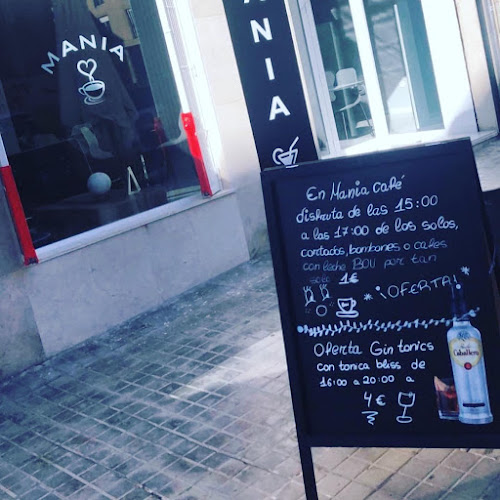 MANIA
ANIA
En Mania café
disfruta de las 15:00
a las 17:00 de los solos,
cortados, bombones o cafes
con leche BOU por tan
solo 1€
*¡OFERTA!*
Oferta Gin tonics
con tonica bliss de
16:00 a 20:00 a
4€
Caballero